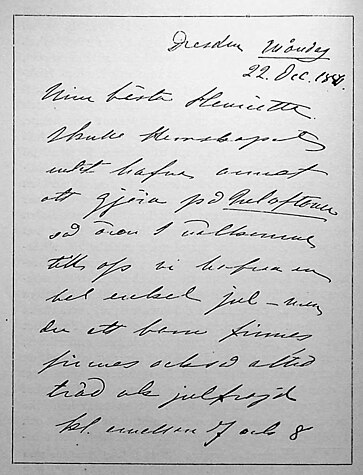 Dresden Måndag
22. Dec. 1884.
Min bästa Henriette.
Skulle Herrskapet
intet hafva annat
att gjöra på Julaftonen
så ären I välkomna
till oss vi hafva en
hel enkel jul – men
der ett barn finnes
finnes också alltid
träd och julfröjd
kl. emellan 7 och 8